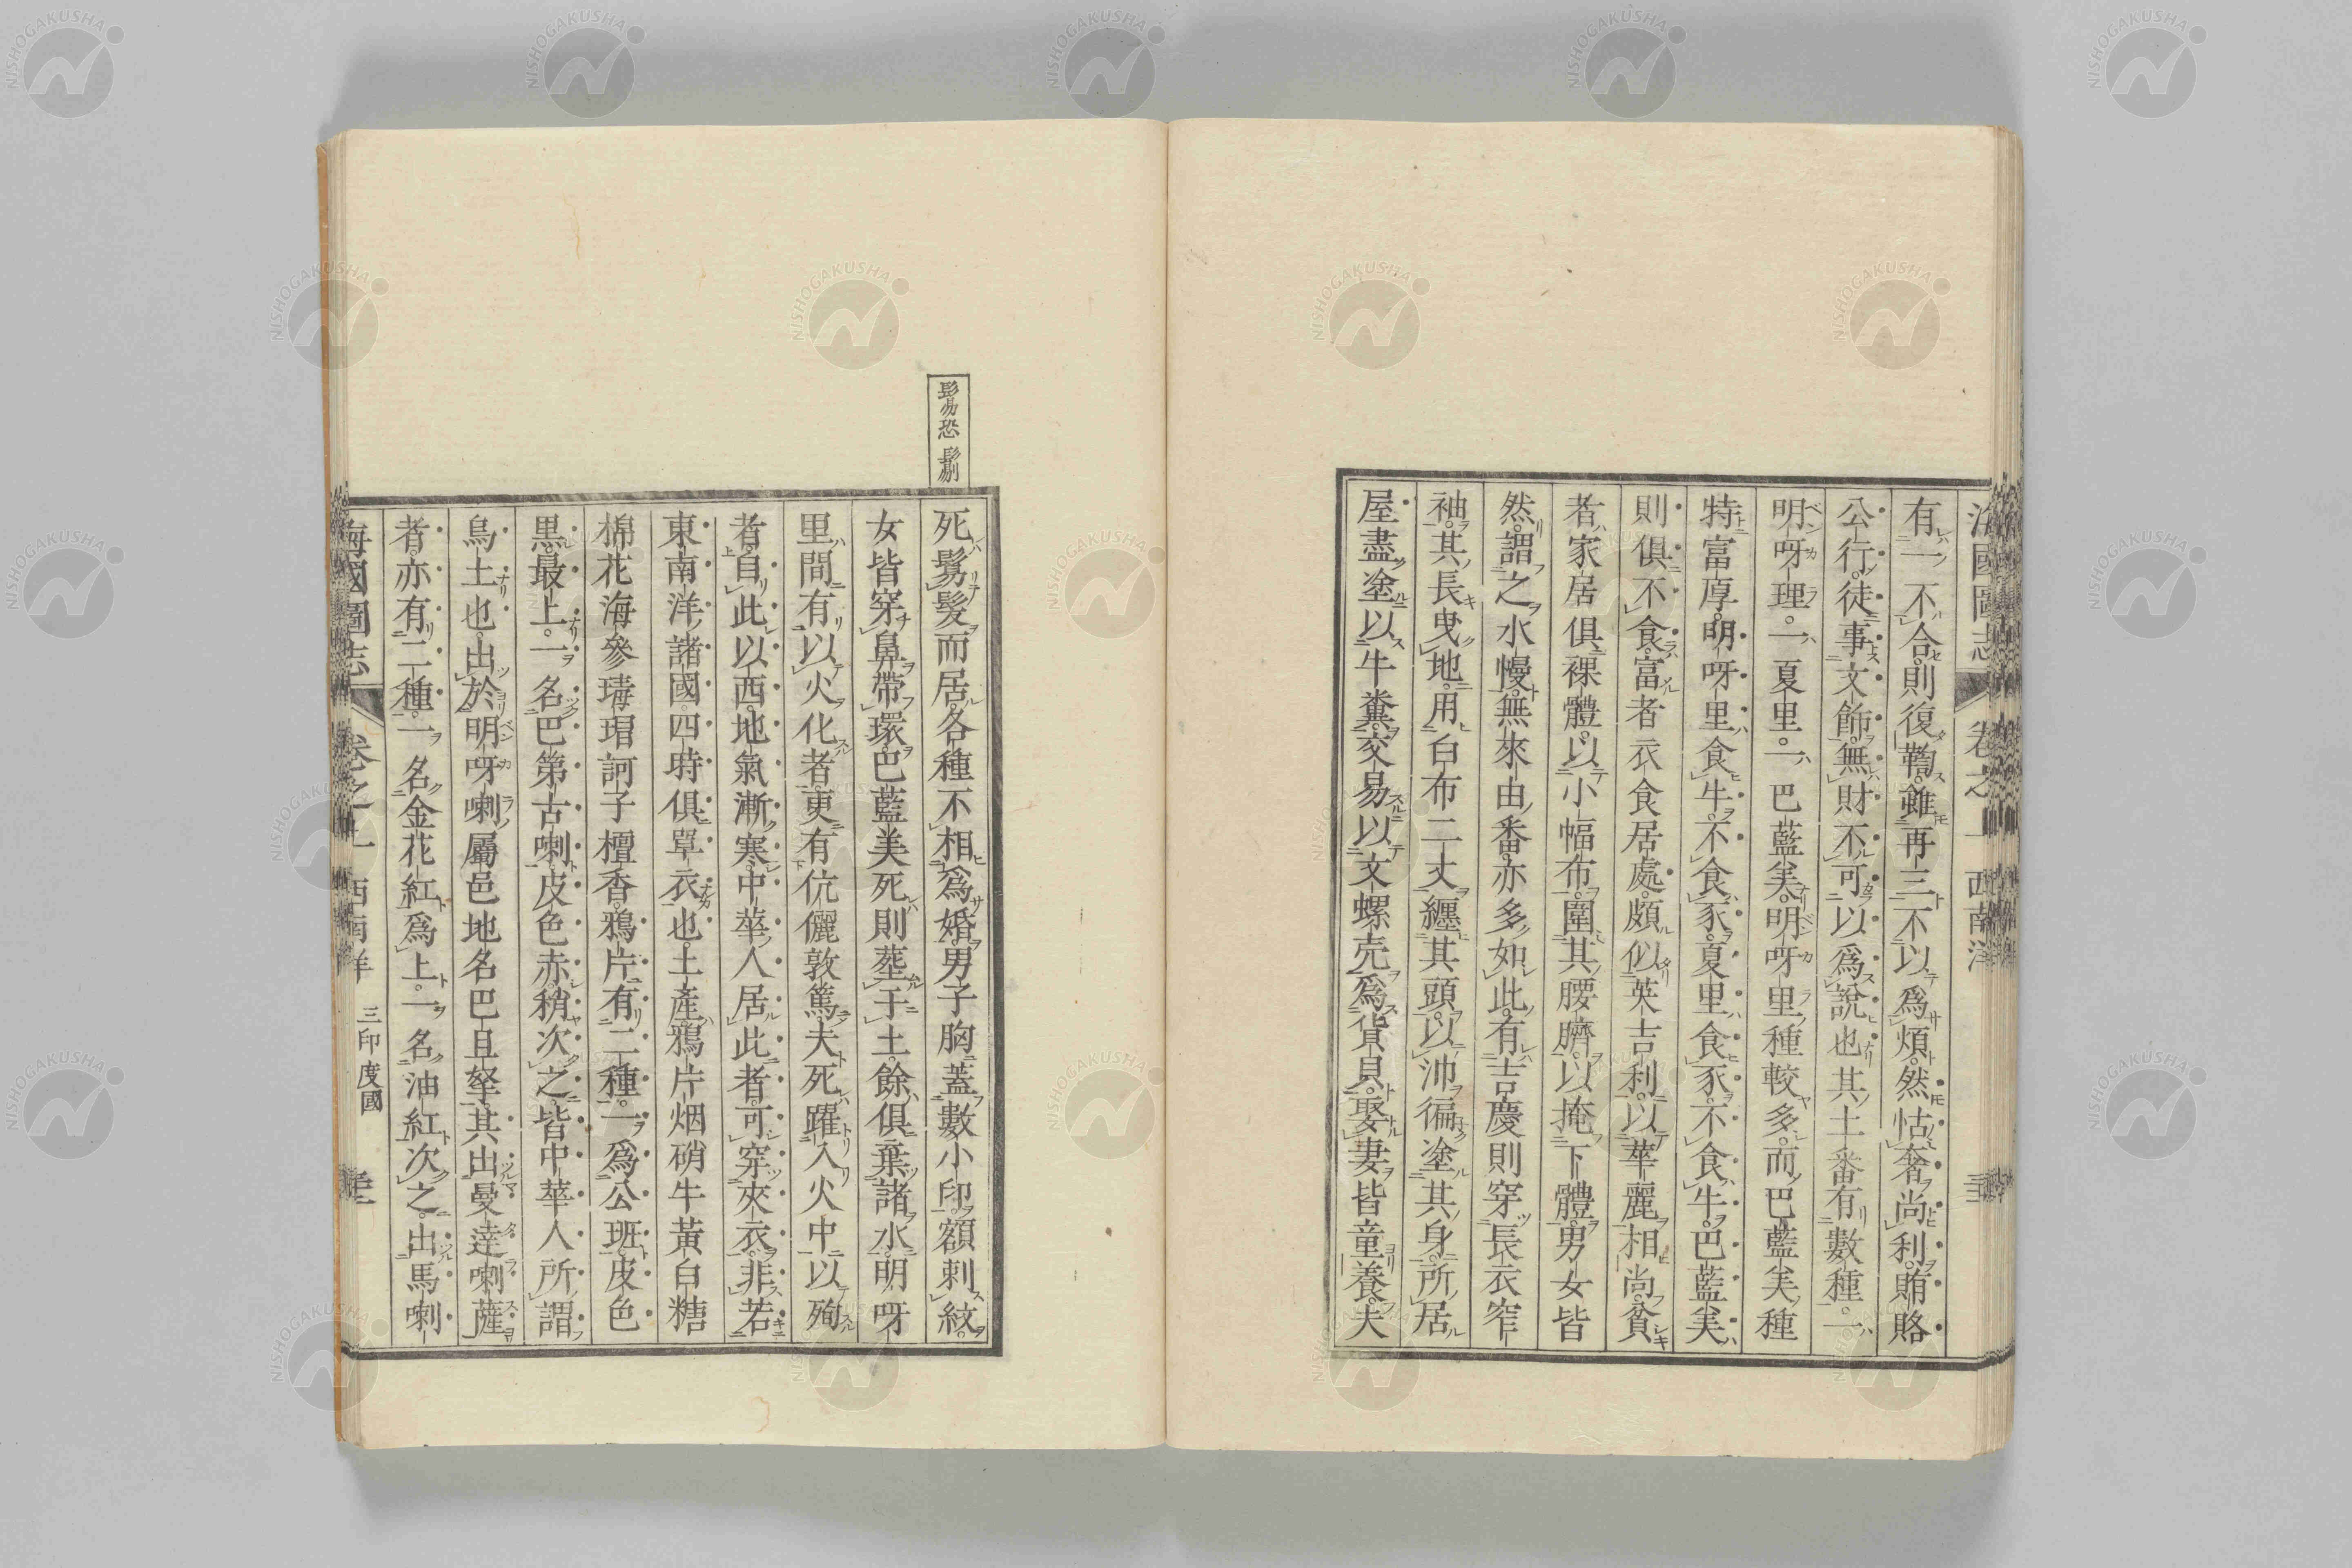 有一不合。則復鞫。雖再三不以爲煩。然怙奢尚利。賄賂
公行。徒事文飾。無財不可以爲說也。其土番有數種。一
明呀理。一夏里。一巴藍美。明呀里種較多。而巴藍美種
特富厚。明呀里食牛。不食豕。夏里食豕。不食牛。巴藍美
則俱不食。富者衣食居處。頗似英吉利。以華麗相尚。貧
者家居俱裸體。以小幅布。圍其腰臍。以掩下體。男女皆
然。謂之水慢。無來由番亦多如此。有吉慶則穿長衣窄
袖。其長曳地。用白布二丈纏其頭。以油徧塗其身。所居
屋盡塗以牛糞。交易以文螺壳爲貨貝。娶妻皆童養。夫
死鬄髮而居。各種不相爲婚。男子胸蓋數小印。額刺紋。
女皆穿鼻帶環。巴藍美死則葬于土。餘俱棄諸水。明呀
里間有以火化者。更有伉儷敦篤。夫死躍入火中以殉
者。自此以西。地氣漸寒。中華人居此者。可穿夾衣。非若
東南洋諸國。四時俱單衣也。土產鴉片烟硝牛黃白糖
棉花海參瑇瑁訶子檀香。鴉片有二種。一爲公班。皮色
黑最上。一名巴第古喇。皮色赤稍次之。皆中華人所謂
烏土也。出於明呀喇屬邑地名巴旦拏。其出曼達喇薩
者。亦有二種。一名金花紅爲上。一名油紅次之。出馬喇
鬄恐鬎
海國圖志 卷之 西南洋
海國圖志 卷之 西南洋 三印度國